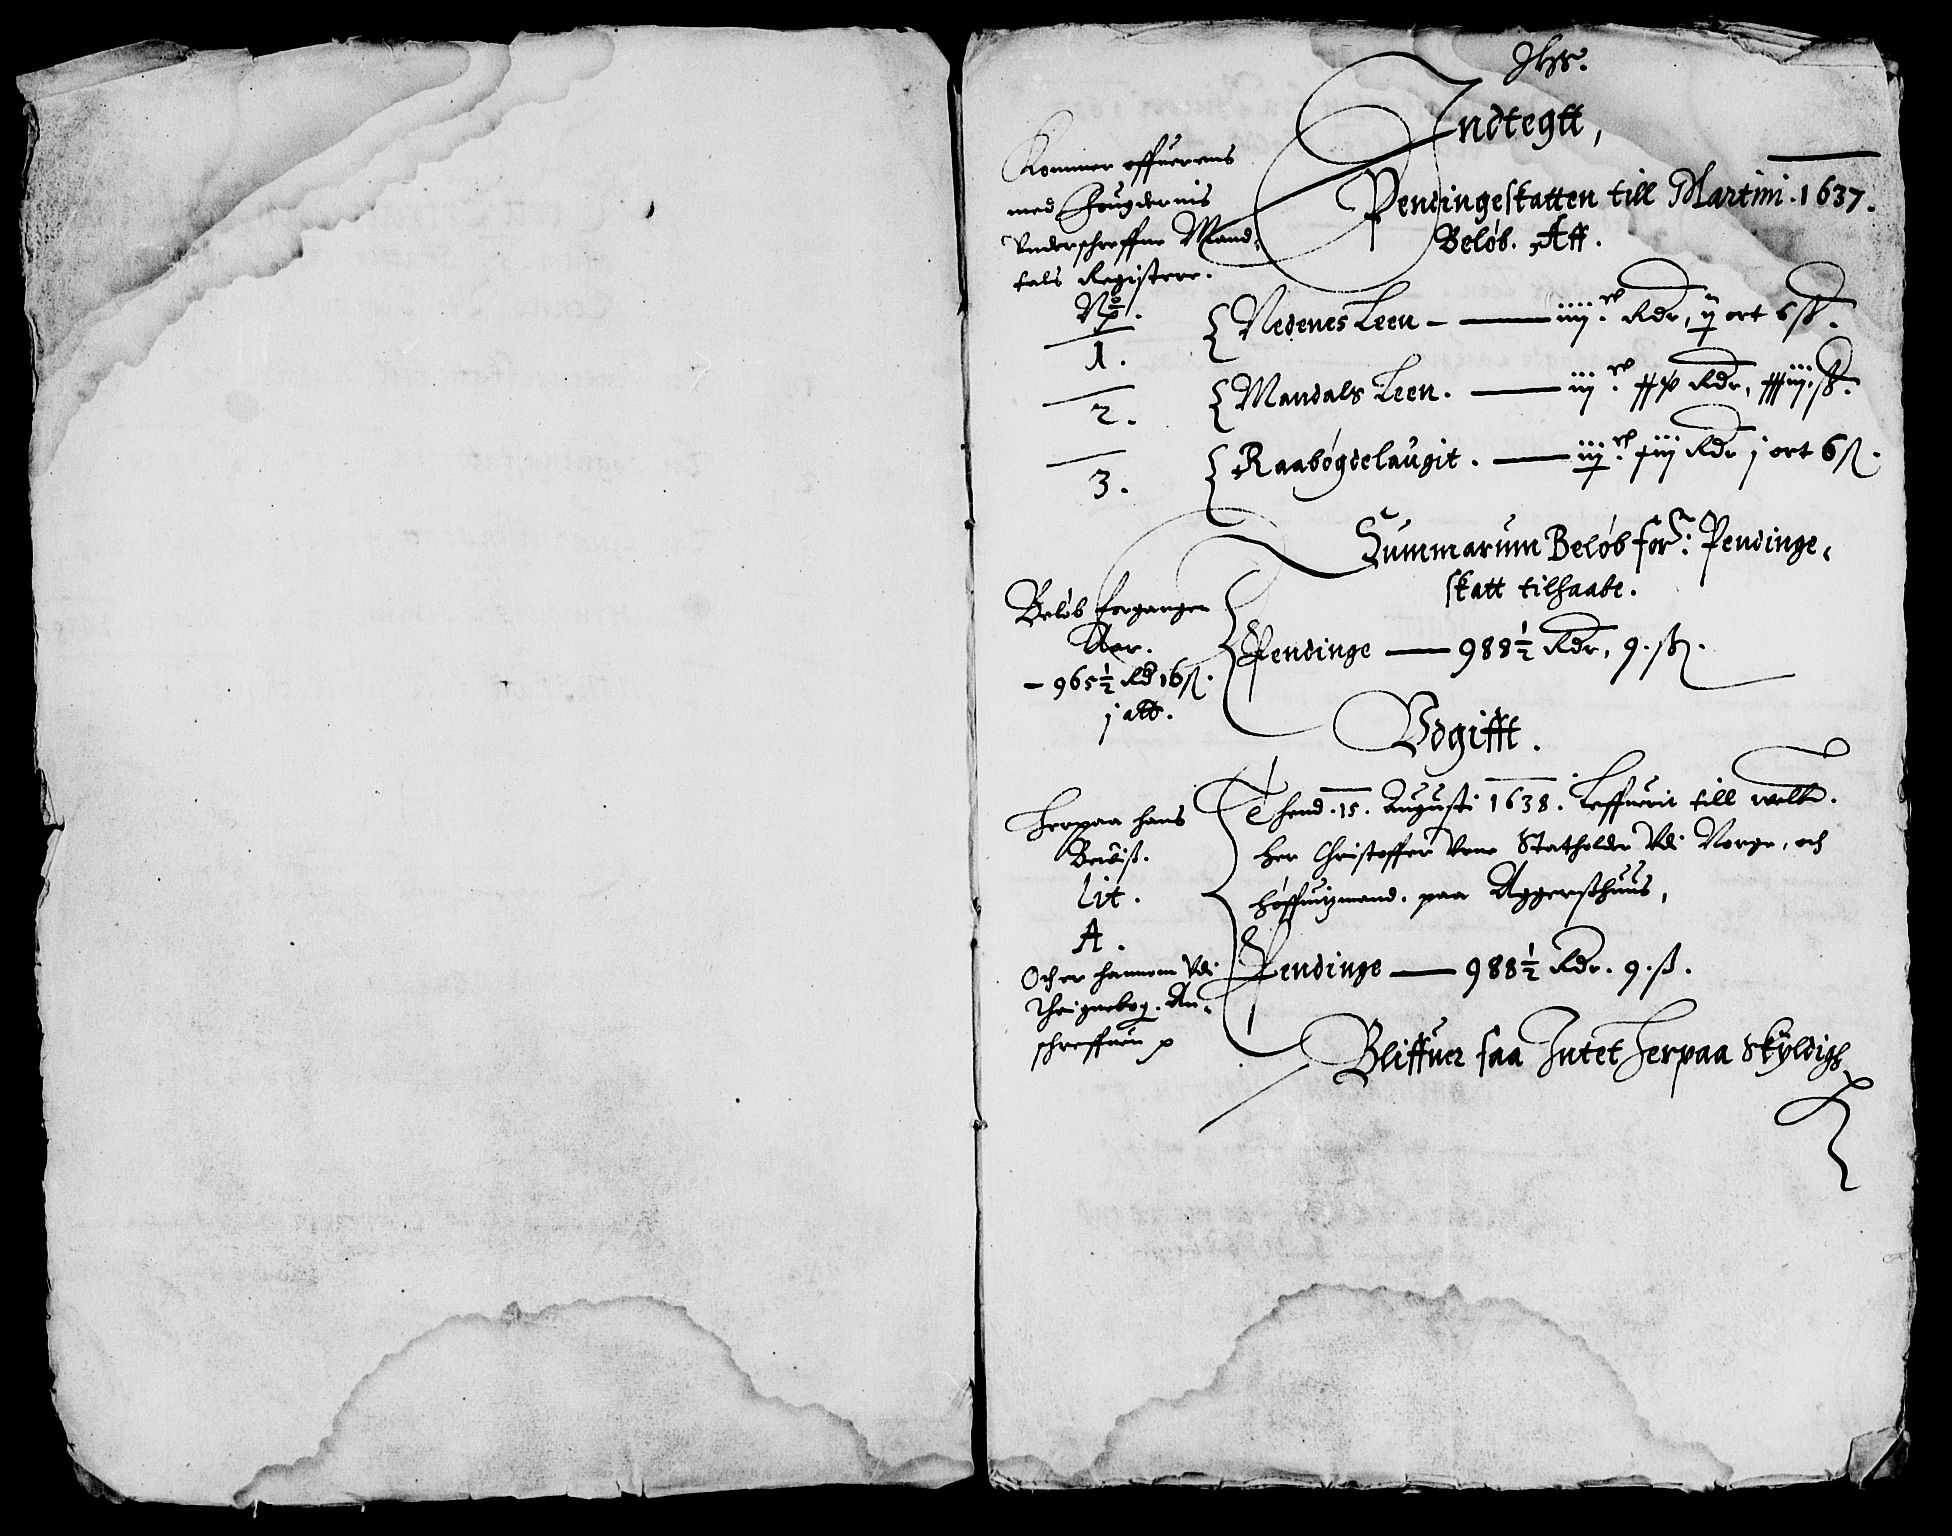 Jhs.
Indtegtt,
Pendingeskatten till Martini. 1637.
Beløb. Aff.
Kommer offuerens
med Fougdernis
Underschreffne Mand-
tals Registere.
No.
1. Nedenes Leen — iiijc Rdr, ij ort 6 ß.
2. Mandals Leen. — iijc Rdr, ß.
3. Raabøgdelaugit. — Rdr j ort 6 ß.
Summarum Beløb for: Pendinge-
skatt tilhaabe.
Beløb forgangen
Aar.
— 965½ Rd 16 ß.
j alb.
Pendinge — 988½ Rdr, 9. ß.
Udgifft.
Herpaa hans
Beviß.
Lit.
A.
Och er hannom Udi
Schreffuen
Thend. 15. Augusti 1638. Leffuerit till welb.
Her Christoffer Urne Statholder Udi Norge, och
høffuitzmand. paa Aggerßhuus,
Pendinge — 988½ Rdr. 9. ß.
Bliffuer saa Intet Herpaa Skyldigh